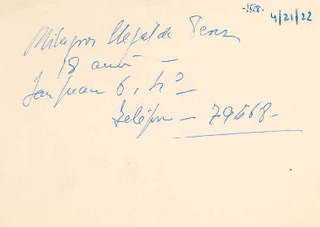 -1528-
4/21/22
Milagros Ilegalde Perez
18 años —
San Juan 6, 4º
Teléfono — 79568-